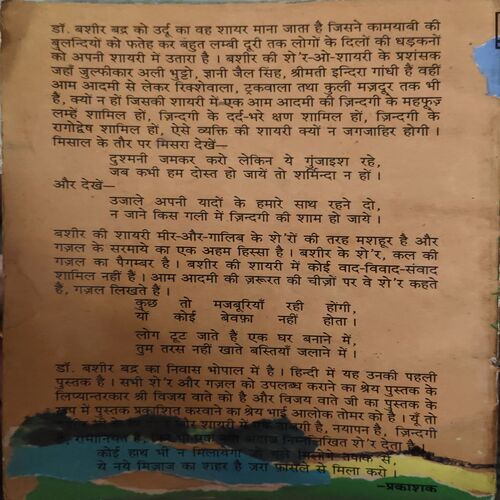 डॉ. बशीर बद्र को उर्दू का वह शायर माना जाता है जिसने कामयाबी की
बुलन्दियों को फतेह कर बहुत लम्बी दूरी तक लोगों के दिलों की धड़कनों
को अपनी शायरी में उतारा है । बशीर की शे'र-ओ-शायरी के प्रशंसक
जहाँ जुल्फीकार अली भुट्टो, ज्ञानी जैल सिंह, श्रीमती इन्दिरा गांधी हैं वहीं
आम आदमी से लेकर रिक्शेवाला, ट्रकवाला तथा कुली मज़दूर तक भी
हैं, क्यों न हों जिसकी शायरी में एक आम आदमी की ज़िन्दगी के महफूज़
लम्हें शामिल हों, ज़िन्दगी के दर्द-भरे क्षण शामिल हों, ज़िन्दगी के
रागोद्वेष शामिल हों, ऐसे व्यक्ति की शायरी क्यों न जगजाहिर होगी ।
मिसाल के तौर पर मिसरा देखें—
दुश्मनी जमकर करो लेकिन ये गुंजाइश रहे,
जब कभी हम दोस्त हो जायें तो शर्मिन्दा न हों ।
और देखें—
उजाले अपनी यादों के हमारे साथ रहने दो,
न जाने किस गली में ज़िन्दगी की शाम हो जाये ।
बशीर की शायरी मीर-और-गालिब के शे'रों की तरह मशहूर है और
गज़ल के सरमाये का एक अहम हिस्सा है । बशीर के शे'र, कल की
गज़ल का पैगम्बर है । बशीर की शायरी में कोई वाद-विवाद-संवाद
शामिल नहीं है । आम आदमी की ज़रूरत की चीज़ों पर वे शे'र कहते
हैं, गज़ल लिखते हैं ।
कुछ तो मजबूरियाँ रही होंगी,
यों कोई बेवफ़ा नहीं होता ।
लोग टूट जाते हैं एक घर बनाने में,
तुम तरस नहीं खाते बस्तियाँ जलाने में ।
डॉ. बशीर बद्र का निवास भोपाल में है । हिन्दी में यह उनकी पहली
पुस्तक है । सभी शे'र और गज़ल को उपलब्ध कराने का श्रेय पुस्तक के
लिप्यान्तरकार श्री विजय वाते को है और विजय वाते जी का पुस्तक के
रूप में पुस्तक प्रकाशित करवाने का श्रेय भाई आलोक तोमर को है । यूँ तो
शायरी में एक है, नयापन है, ज़िन्दगी
है, रूमानियत है, फिर भी एक नया अंदाज़ निम्नलिखित शे'र देता है
कोई हाथ भी न मिलायेगा जो गले मिलोगे तपाक से,
ये नये मिज़ाज का शहर है ज़रा फ़ासले से मिला करो ।
-प्रकाशक